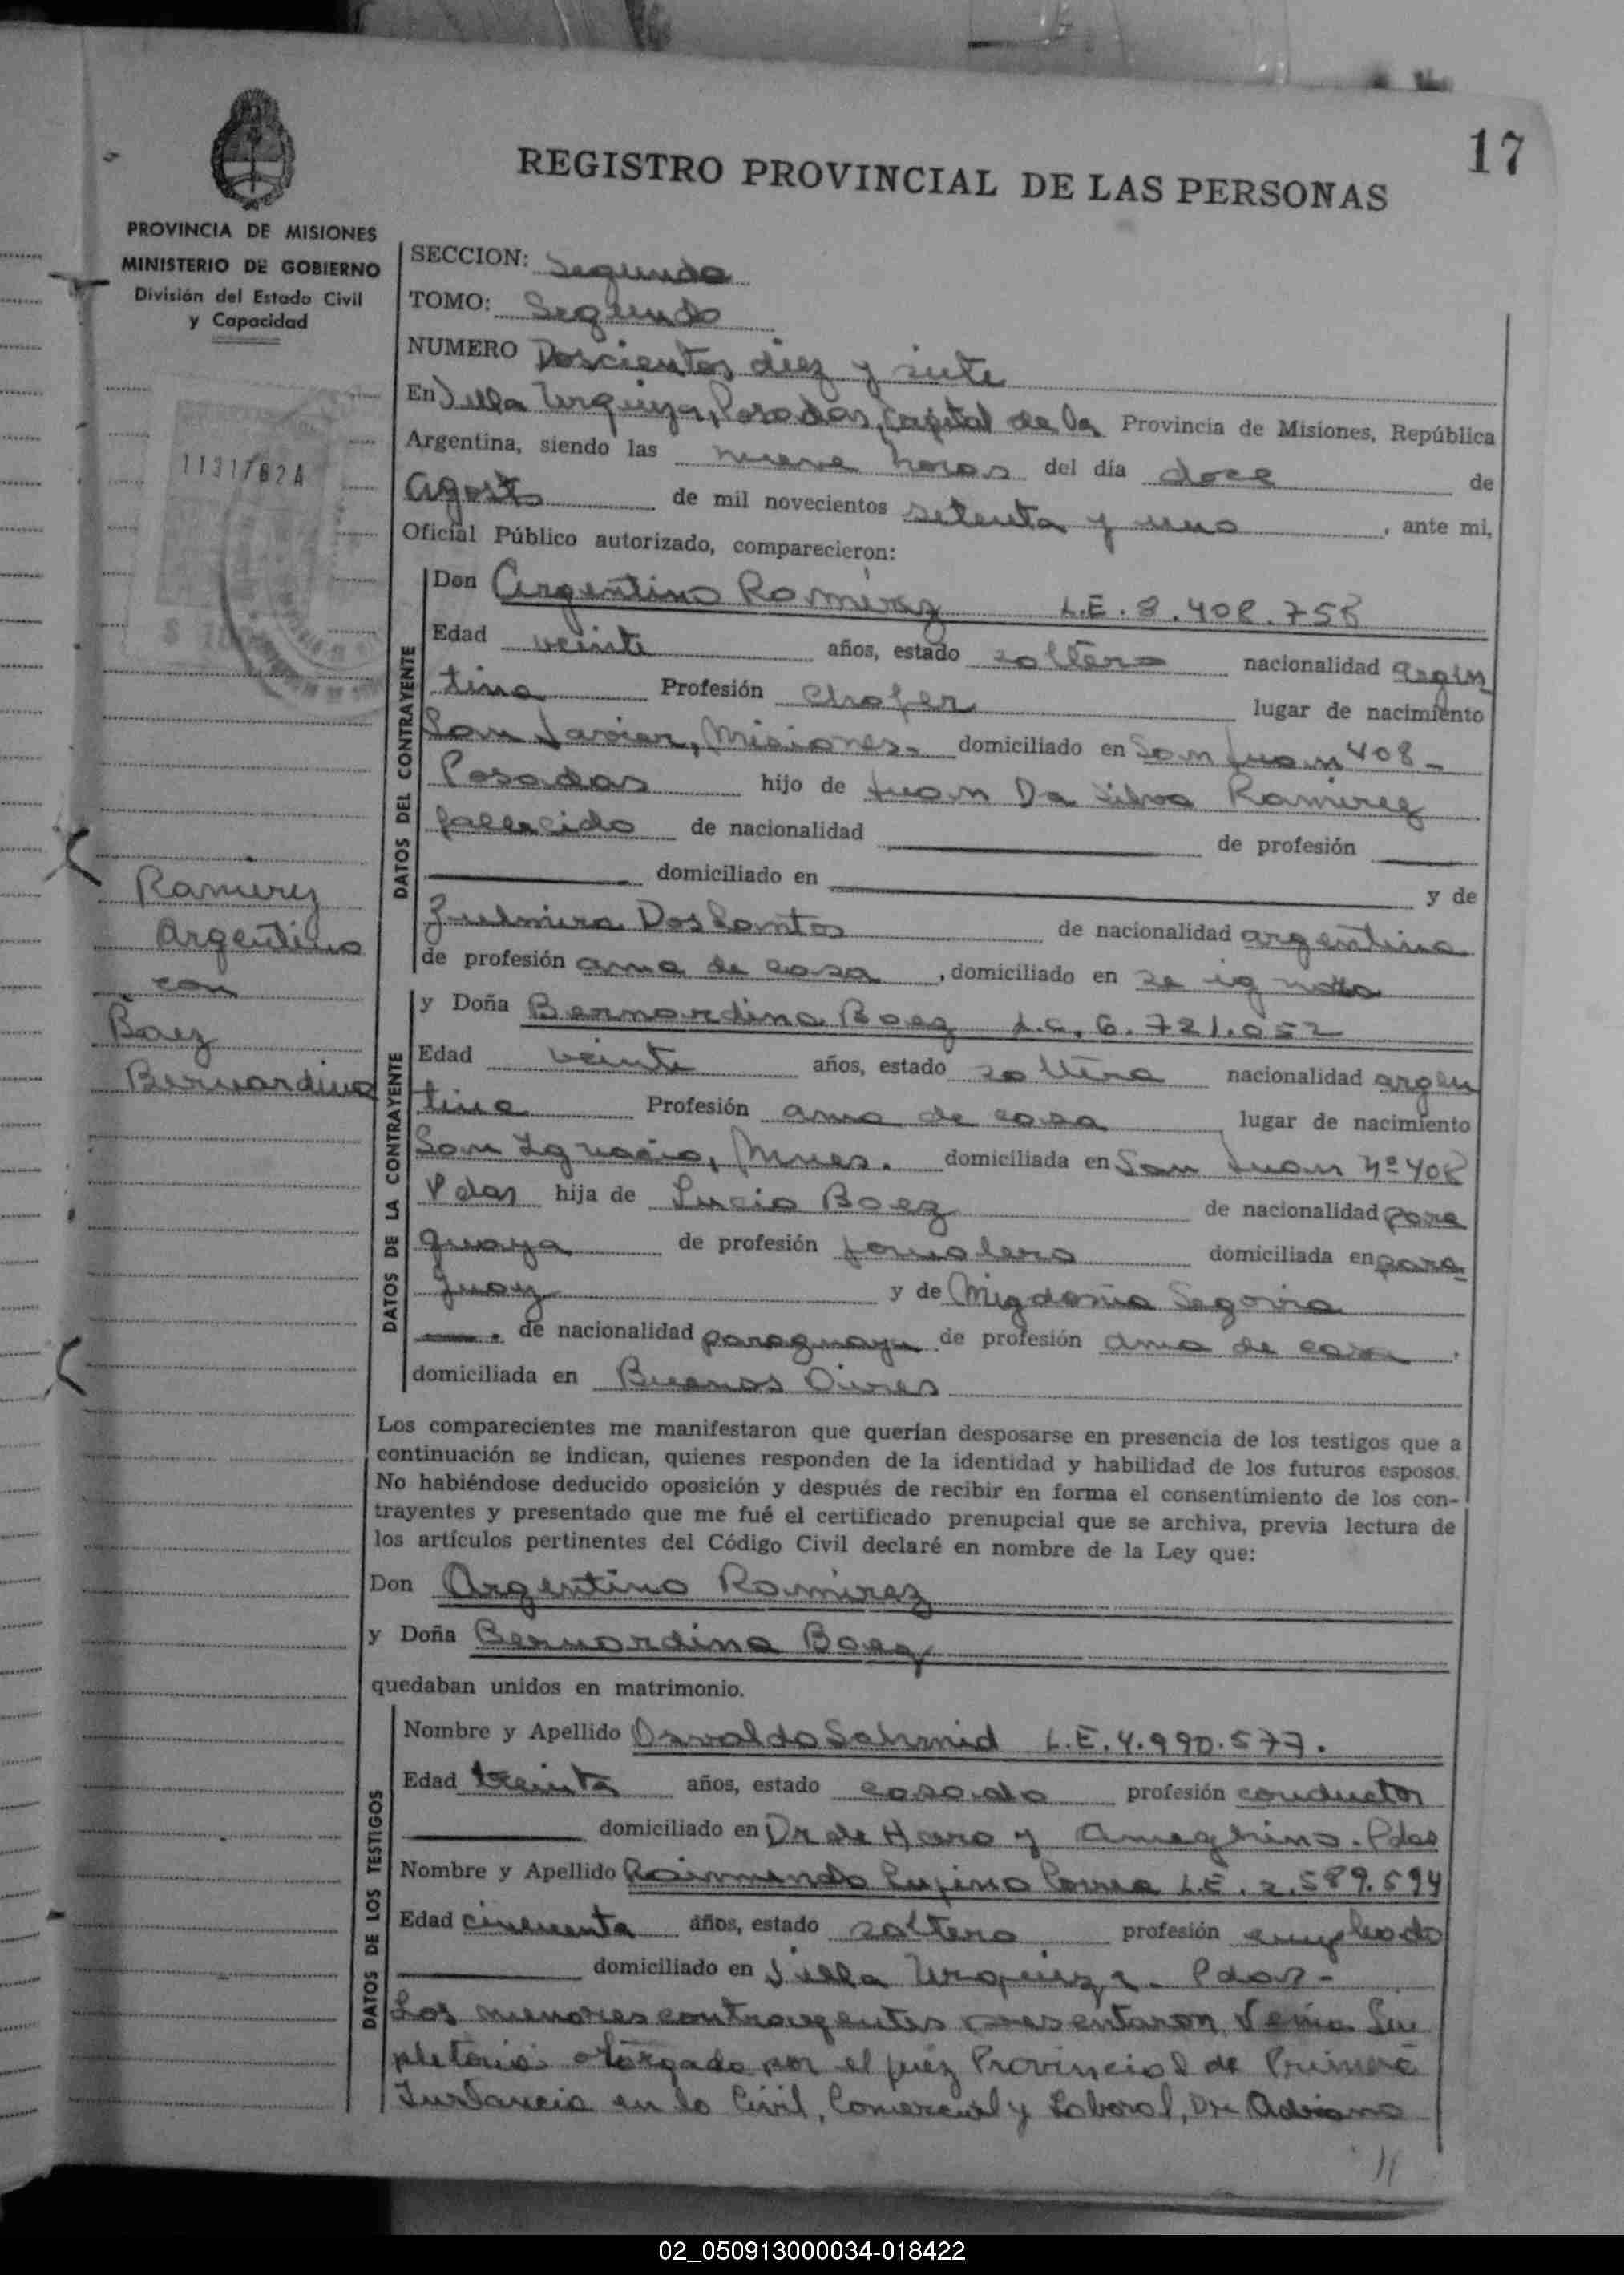 17
REGISTRO PROVINCIAL DE LAS PERSONAS
PROVINCIA DE MISIONES
MINISTERIO DE GOBIERNO
División del Estado Civil
y Capacidad
1131/62A
Ramirez
Argentino
con
Baez
Bernardina
SECCION: Segunda
TOMO: Segundo
NUMERO Doscientos diez y siete
En Villa Urquiza, Posadas, Capital de la Provincia de Misiones, República
Argentina, siendo las nueve horas del día doce de
Agosto de mil novecientos setenta y uno, ante mi,
Oficial Público autorizado, comparecieron:
DATOS DEL CONTRAYENTE
Don Argentino Ramirez L.E. 8.408.758
Edad veinte años, estado soltero nacionalidad argen
tina Profesión Chofer lugar de nacimiento
San Javier, Misiones.- domiciliado en San Juan 408-
Posadas hijo de Juan Da Silva Ramirez
fallecido de nacionalidad de profesión
domiciliado en y de
Zulmira Dos Santos de nacionalidad argentina
de profesión ama de casa, domiciliado en se ignora
DATOS DE LA CONTRAYENTE
y Doña Bernardina Baez L.C. 6.721.052
Edad veinte años, estado soltera nacionalidad argen
tina Profesión ama de casa lugar de nacimiento
San Ignacio, Mnes. domiciliada en San Juan Nº 408
Pdas hija de Lucio Baez de nacionalidad para
guaya de profesión jornalero domiciliada en para-
guay y de Migdonia Segovia
de nacionalidad paraguaya de profesión ama de casa,
domiciliada en Buenos Aires
Los comparecientes me manifestaron que querían desposarse en presencia de los testigos que a
continuación se indican, quienes responden de la identidad y habilidad de los futuros esposos.
No habiéndose deducido oposición y después de recibir en forma el consentimiento de los con-
trayentes y presentado que me fué el certificado prenupcial que se archiva, previa lectura de
los artículos pertinentes del Código Civil declaré en nombre de la Ley que:
Don Argentino Ramirez
y Doña Bernardina Baez
quedaban unidos en matrimonio.
DATOS DE LOS TESTIGOS
Nombre y Apellido Osvaldo Schmid L.E. 4.990.577.
Edad treinta años, estado casado profesión conductor
domiciliado en Dr de Haro y Ameghino. Pdas
Nombre y Apellido Raimundo Lupino Correa L.E. 2.589.594
Edad cincuenta años, estado soltero profesión empleado
domiciliado en Villa Urquiza. Pdas-
Los menores contrayentes presentaron Venia Su
pletoria otorgada por el juez Provincial de Primera
Instancia en lo Civil, Comercial y Laboral, Dr Adriano
02_050913000034-018422